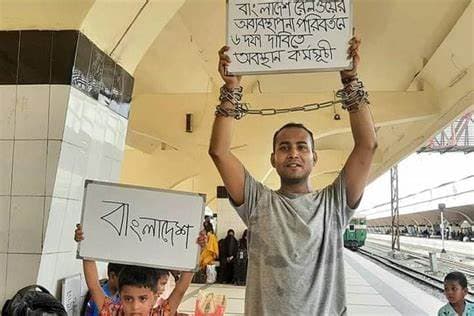 বাংলাদেশ রেলওয়ের
অব্যবস্থাপনা পরিবর্তনে
৬ দফা দাবিতে
অবস্থান কর্মসূচী
বাংলাদেশ